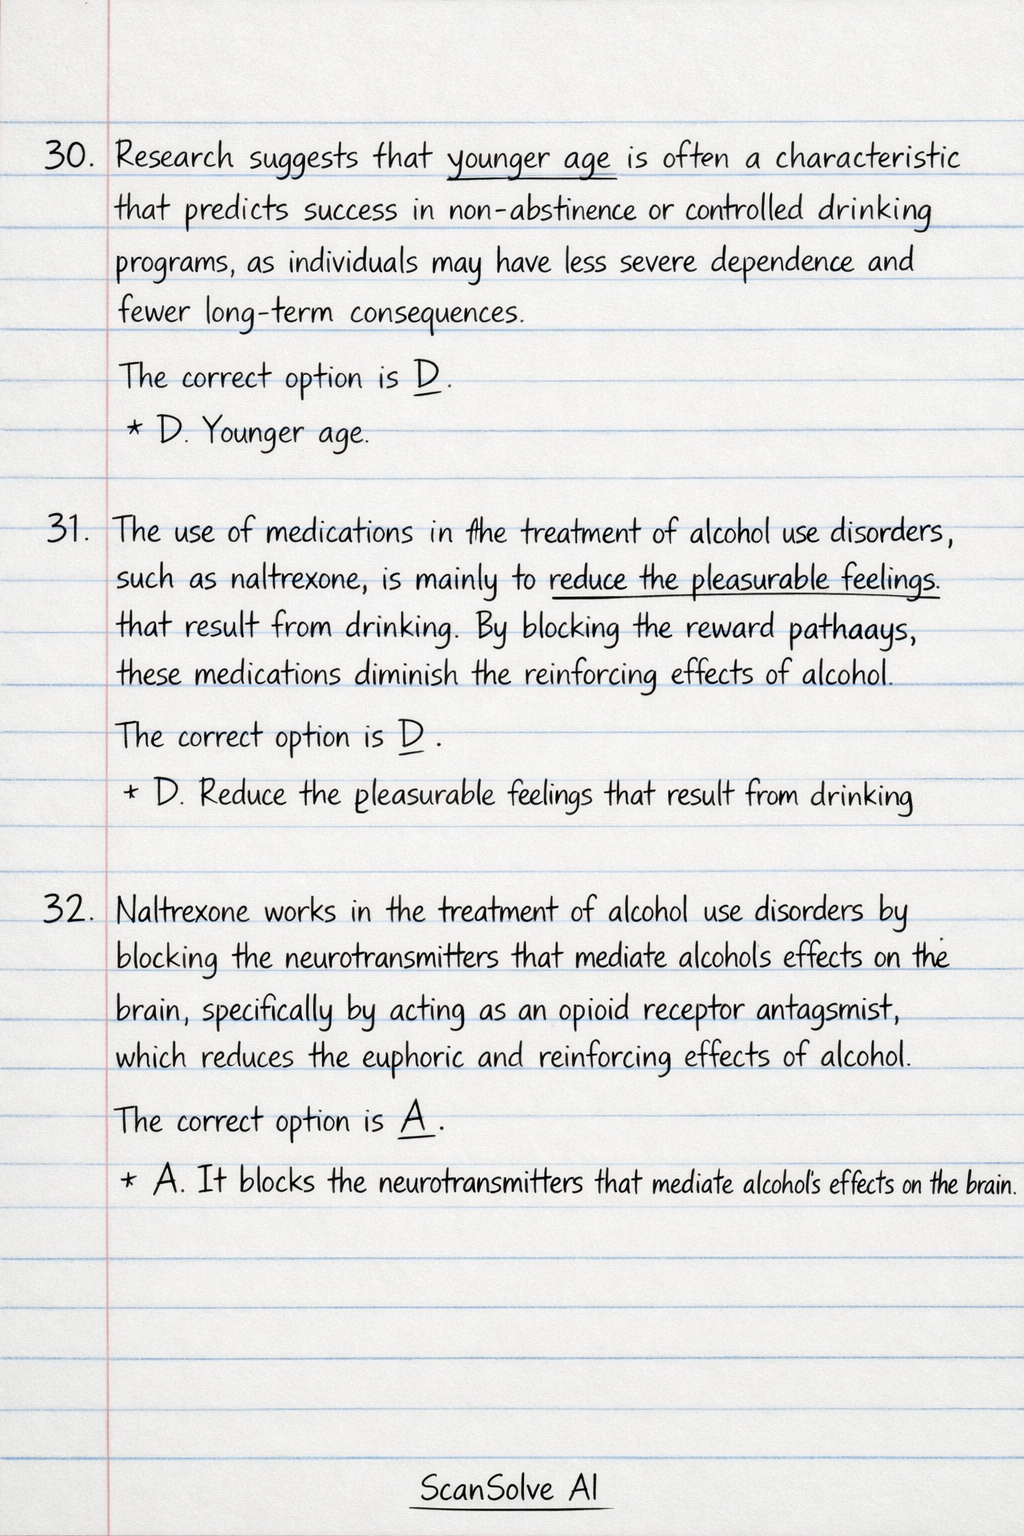 30. Research suggests that younger age is often a characteristic
that predicts success in non-abstinence or controlled drinking
programs, as individuals may have less severe dependence and
fewer long-term consequences.
The correct option is D.
* D. Younger age.
31. The use of medications in the treatment of alcohol use disorders,
such as naltrexone, is mainly to reduce the pleasurable feelings.
that result from drinking. By blocking the reward pathaays,
these medications diminish the reinforcing effects of alcohol.
The correct option is D.
* D. Reduce the pleasurable feelings that result from drinking
32. Naltrexone works in the treatment of alcohol use disorders by
blocking the neurotransmitters that mediate alcohol's effects on the
brain, specifically by acting as an opioid receptor antagsmist,
which reduces the euphoric and reinforcing effects of alcohol.
The correct option is A.
* A. It blocks the neurotransmitters that mediate alcohol's effects on the brain.
ScanSolve AI